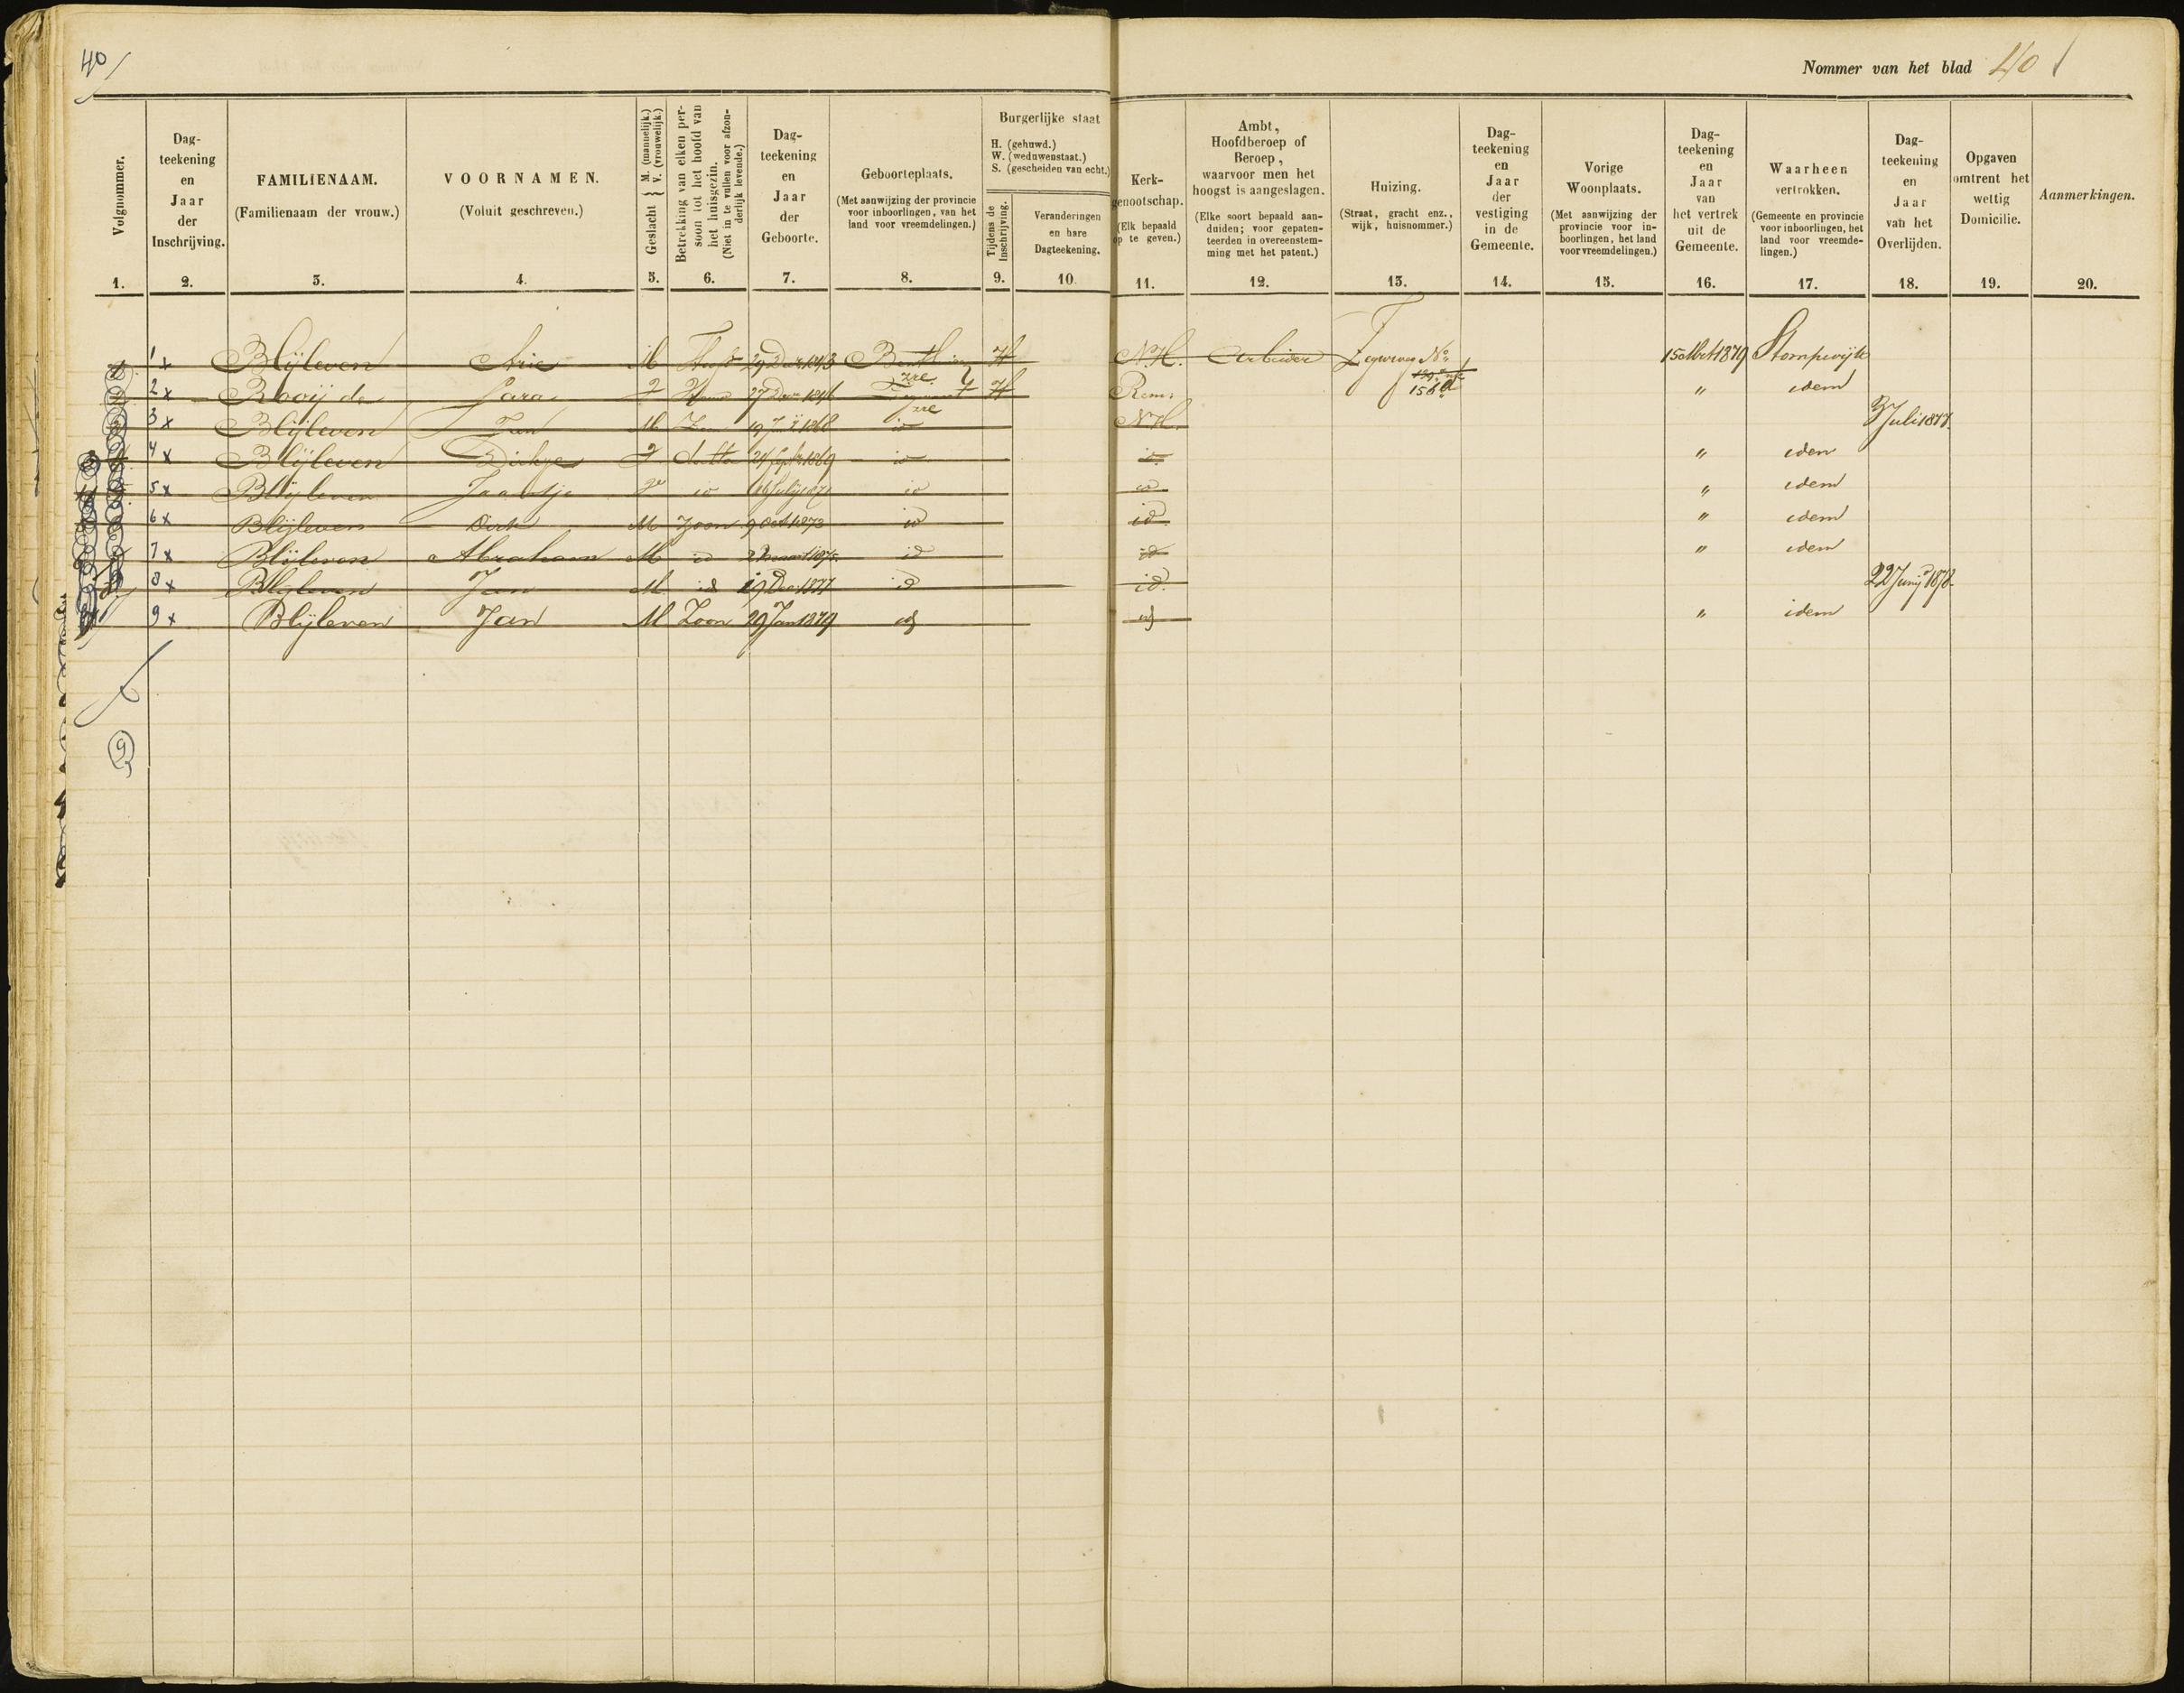 40
Nommer van het blad 40
Volgnommer.
Dag-
teekening
en
Jaar
der
Inschrijving.
FAMILIENAAM.
(Familienaam der vrouw.)
VOORNAMEN.
(Voluit geschreven.)
Geslacht } M. (mannelijk.) V. (vrouwelijk.)
Betrekking van elken per-
soon tot het hoofd van
het huisgezin.
(Niet in te vullen voor afzon-
derlijk levende.)
Dag-
teekening
en
Jaar
der
Geboorte.
Geboorteplaats.
(Met aanwijzing der provincie
voor inboorlingen, van het
land voor vreemdelingen.)
Burgerlijke staat
H. (gehuwd.)
W. (weduwenstaat.)
S. (gescheiden van echt.)
Tijdens de
Inschrijving.
Veranderingen
en hare
Dagteekening.
Kerk-
genootschap.
(Elk bepaald
op te geven.)
Ambt,
Hoofdberoep of
Beroep,
waarvoor men het
hoogst is aangeslagen.
(Elke soort bepaald aan-
duiden; voor gepaten-
teerden in overeenstem-
ming met het patent.)
Huizing.
(Straat, gracht enz.,
wijk, huisnommer.)
Dag-
teekening
en
Jaar
der
vestiging
in de
Gemeente.
Vorige
Woonplaats.
(Met aanwijzing der
provincie voor in-
boorlingen, het land
voor vreemdelingen.)
Dag-
teekening
en
Jaar
van
het vertrek
uit de
Gemeente.
Waarheen
vertrokken.
(Gemeente en provincie
voor inboorlingen, het
land voor vreemde-
lingen.)
Dag-
teekening
en
Jaar
van het
Overlijden.
Opgaven
omtrent het
wettig
Domicilie.
Aanmerkingen.
1. 2. 3. 4. 5. 6. 7. 8. 9. 10. 11. 12. 13. 14. 15. 16. 17. 18. 19. 20.
1 x Blijleven Arie M Hoofd 29 Dec 1843 H N.H. Arbeider Zegwweg No 15 Oct 1879 Stompwijk
2 x Rooij de Sara V 27 Dec 1846 H Rem. 158d " idem
3 x Blijleven M 1868 id N.H. 3 Juli 1877
4 x Blijleven Dirkje V 24 Sept 1869 id id " idem
5 x Blijleven Jaantje V id 1871 id id " idem
6 x Blijleven Dirk M Zoon 9 Oct 1873 id id " idem
7 x Blijleven Abraham M id 2 Maart 1875 id id " idem
8 x Blijleven Jan M id 19 Dec 1877 id id. 22 Junij 1878
9 x Blijleven Jan M Zoon 29 Jan 1879 id id " idem
9